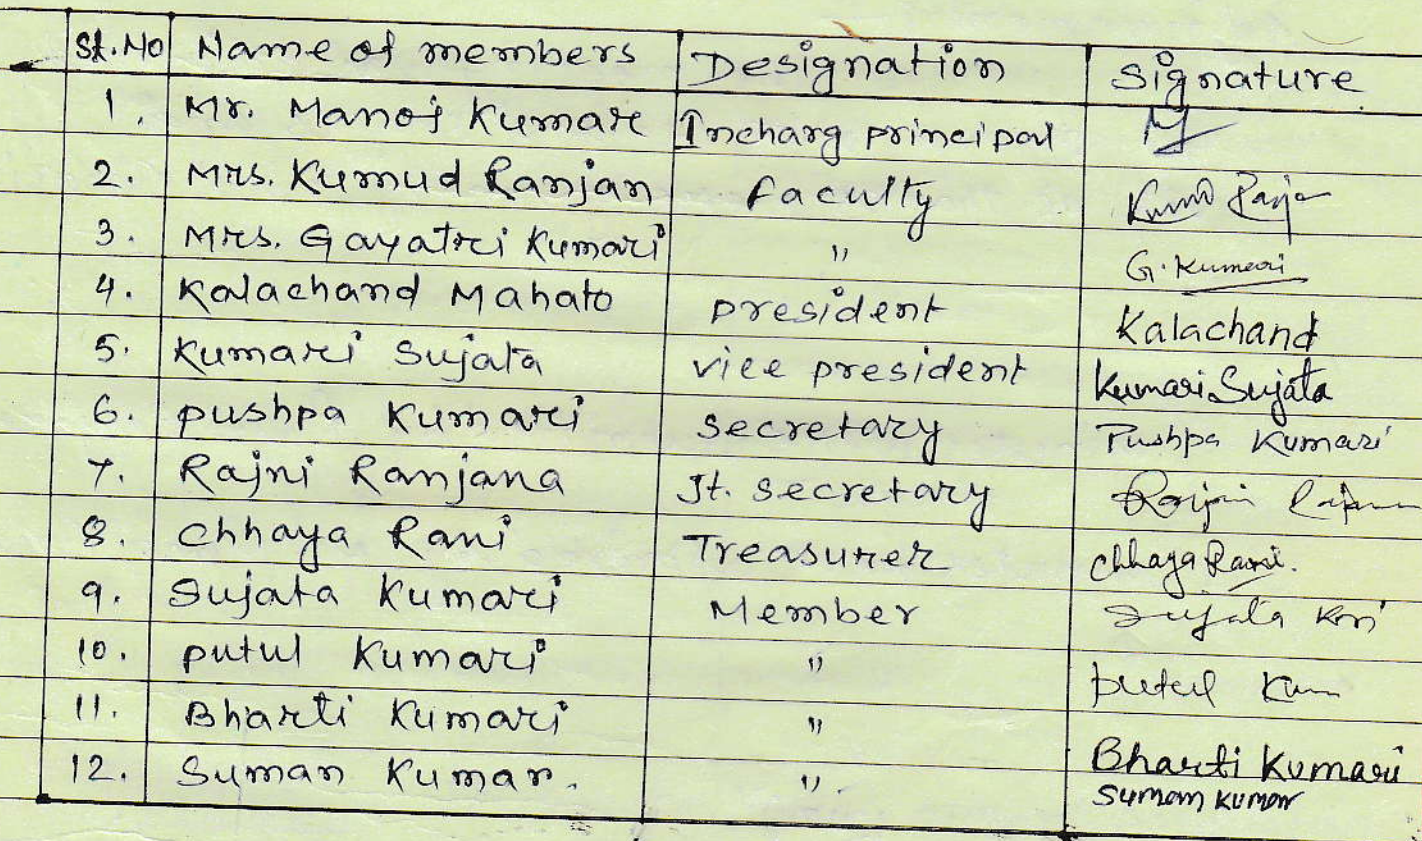 Sl. No Name of members Designation Signature
1. Mr. Manoj Kumar Incharg principal
2. Mrs. Kumud Ranjan faculty Kumud Ranjan
3. Mrs. Gayatri Kumari " G. Kumari
4. Kalachand Mahato president Kalachand
5. Kumari Sujata vice president Kumari Sujata
6. pushpa Kumari secretary Pushpa Kumari
7. Rajni Ranjana Jt. secretary
8. Chhaya Rani Treasurer Chhaya Rani.
9. Sujata Kumari Member Sujata Kri
10. putul Kumari " putul Kum
11. Bharti Kumari " Bharti Kumari
12. Suman Kumar. ". Suman Kumar